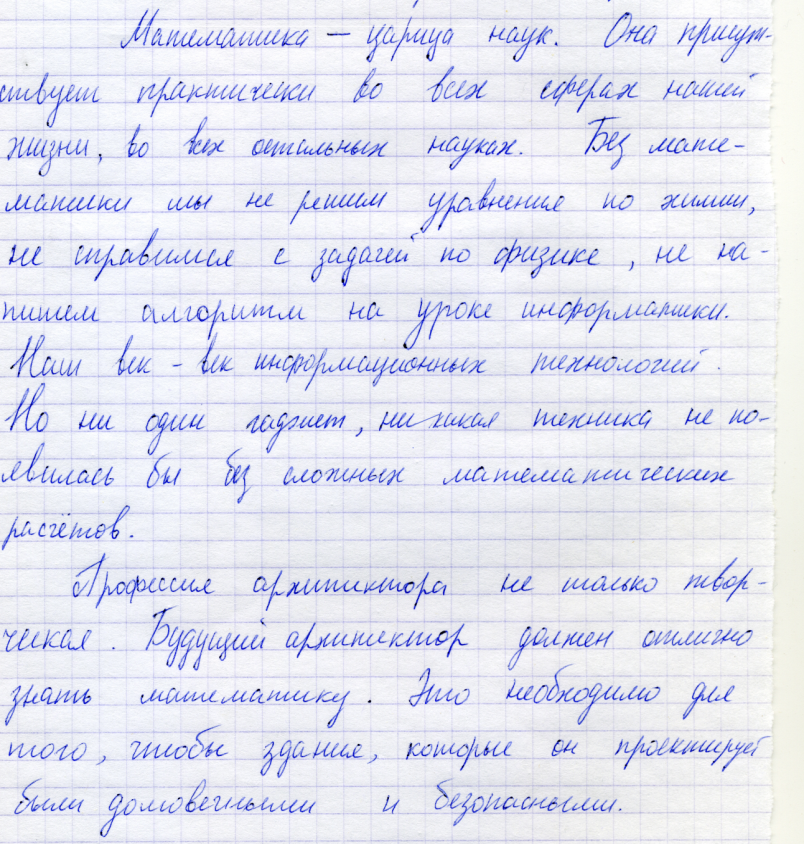 Математика – царица наук. Она присут-
ствует практически во всех сферах нашей
жизни, во всех остальных науках. Без мате-
матики мы не решим уравнение по химии,
не справимся с задачей по физике, не на-
пишем алгоритм на уроке информатики.
Наш век – век информационных технологий.
Но ни один гаджет, никакая техника не по-
явилась бы без сложных математических
расчётов.
Профессия архитектора не только твор-
ческая. Будущий архитектор должен отлично
знать математику. Это необходимо для
того, чтобы здания, которые он проектирует
были долговечными и безопасными.